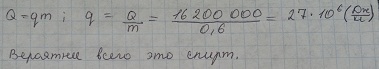 Q=qm ; q = Q/m = 16200 000/0,6 = 27·10⁶ (Дж/кг)
Вероятнее всего это спирт.